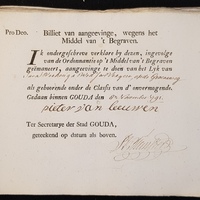 Pro Deo. Billiet van aangeevinge, wegens het
Middel van 't Begraven.
IK ondergeschreve verklare by dezen, ingevolge
van de Ordonnantie op 't Middel van Begraven
geëmaneert, aangeevinge te doen van het Lyk van
als gehoorende onder de Classis van d' onvermogende.
Gedaan binnen GOUDA den
pieter van leeuwen
Ter Secretarye der Stad GOUDA,
geteekend op datum als boven,